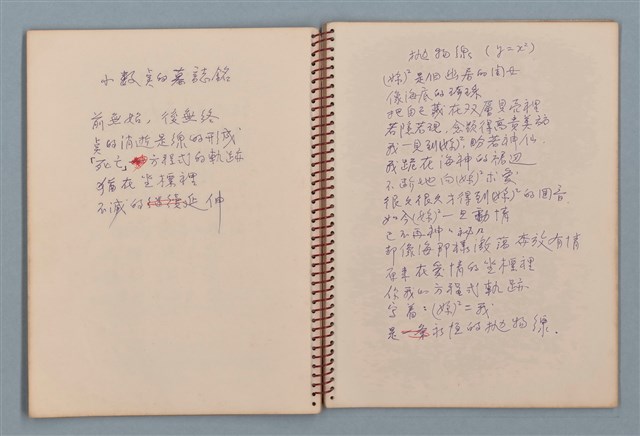 小數點的墓誌銘
前無始，後無終
點的消逝是線的形成
「死亡」方程式的軌跡
猶在坐標裡
不滅的延伸
拋物線（y=x²）
(妳)²是個幽居的閨女
像海底的珍珠
把自己藏在双層貝壳裡
若隱若現，含蓄得高貴美妙
我一見到(妳)²盼若神仙
我跪在海神的裙边
不断地向(妳)²求爱
很久很久才得到(妳)²的回音
如今(妳)²一旦動情
已不再神祕
却像海那樣激蕩奔放有情
原來在爱情的坐標裡
你我的方程式軌跡
寫着：(妳)²=我
是一条永恒的拋物線．